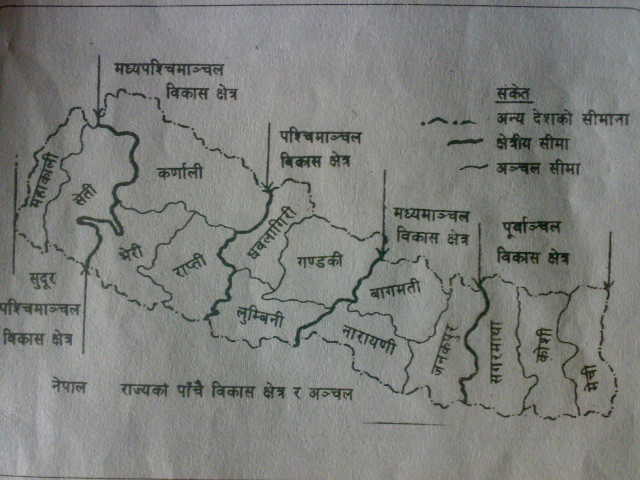 मध्यपश्चिमाञ्चल
विकास क्षेत्र
संकेत
अन्य देशको सीमाना
क्षेत्रीय सीमा
अञ्चल सीमा
पश्चिमाञ्चल
विकास क्षेत्र
मध्यमाञ्चल
विकास क्षेत्र
पूर्वाञ्चल
विकास क्षेत्र
महाकाली
सेती
कर्णाली
भेरी
राप्ती
धवलागिरी
गण्डकी
लुम्बिनी
बागमती
नारायणी
जनकपुर
सगरमाथा
कोशी
मेची
सुदूर
पश्चिमाञ्चल
विकास क्षेत्र
नेपाल राज्यको पाँचै विकास क्षेत्र र अञ्चल